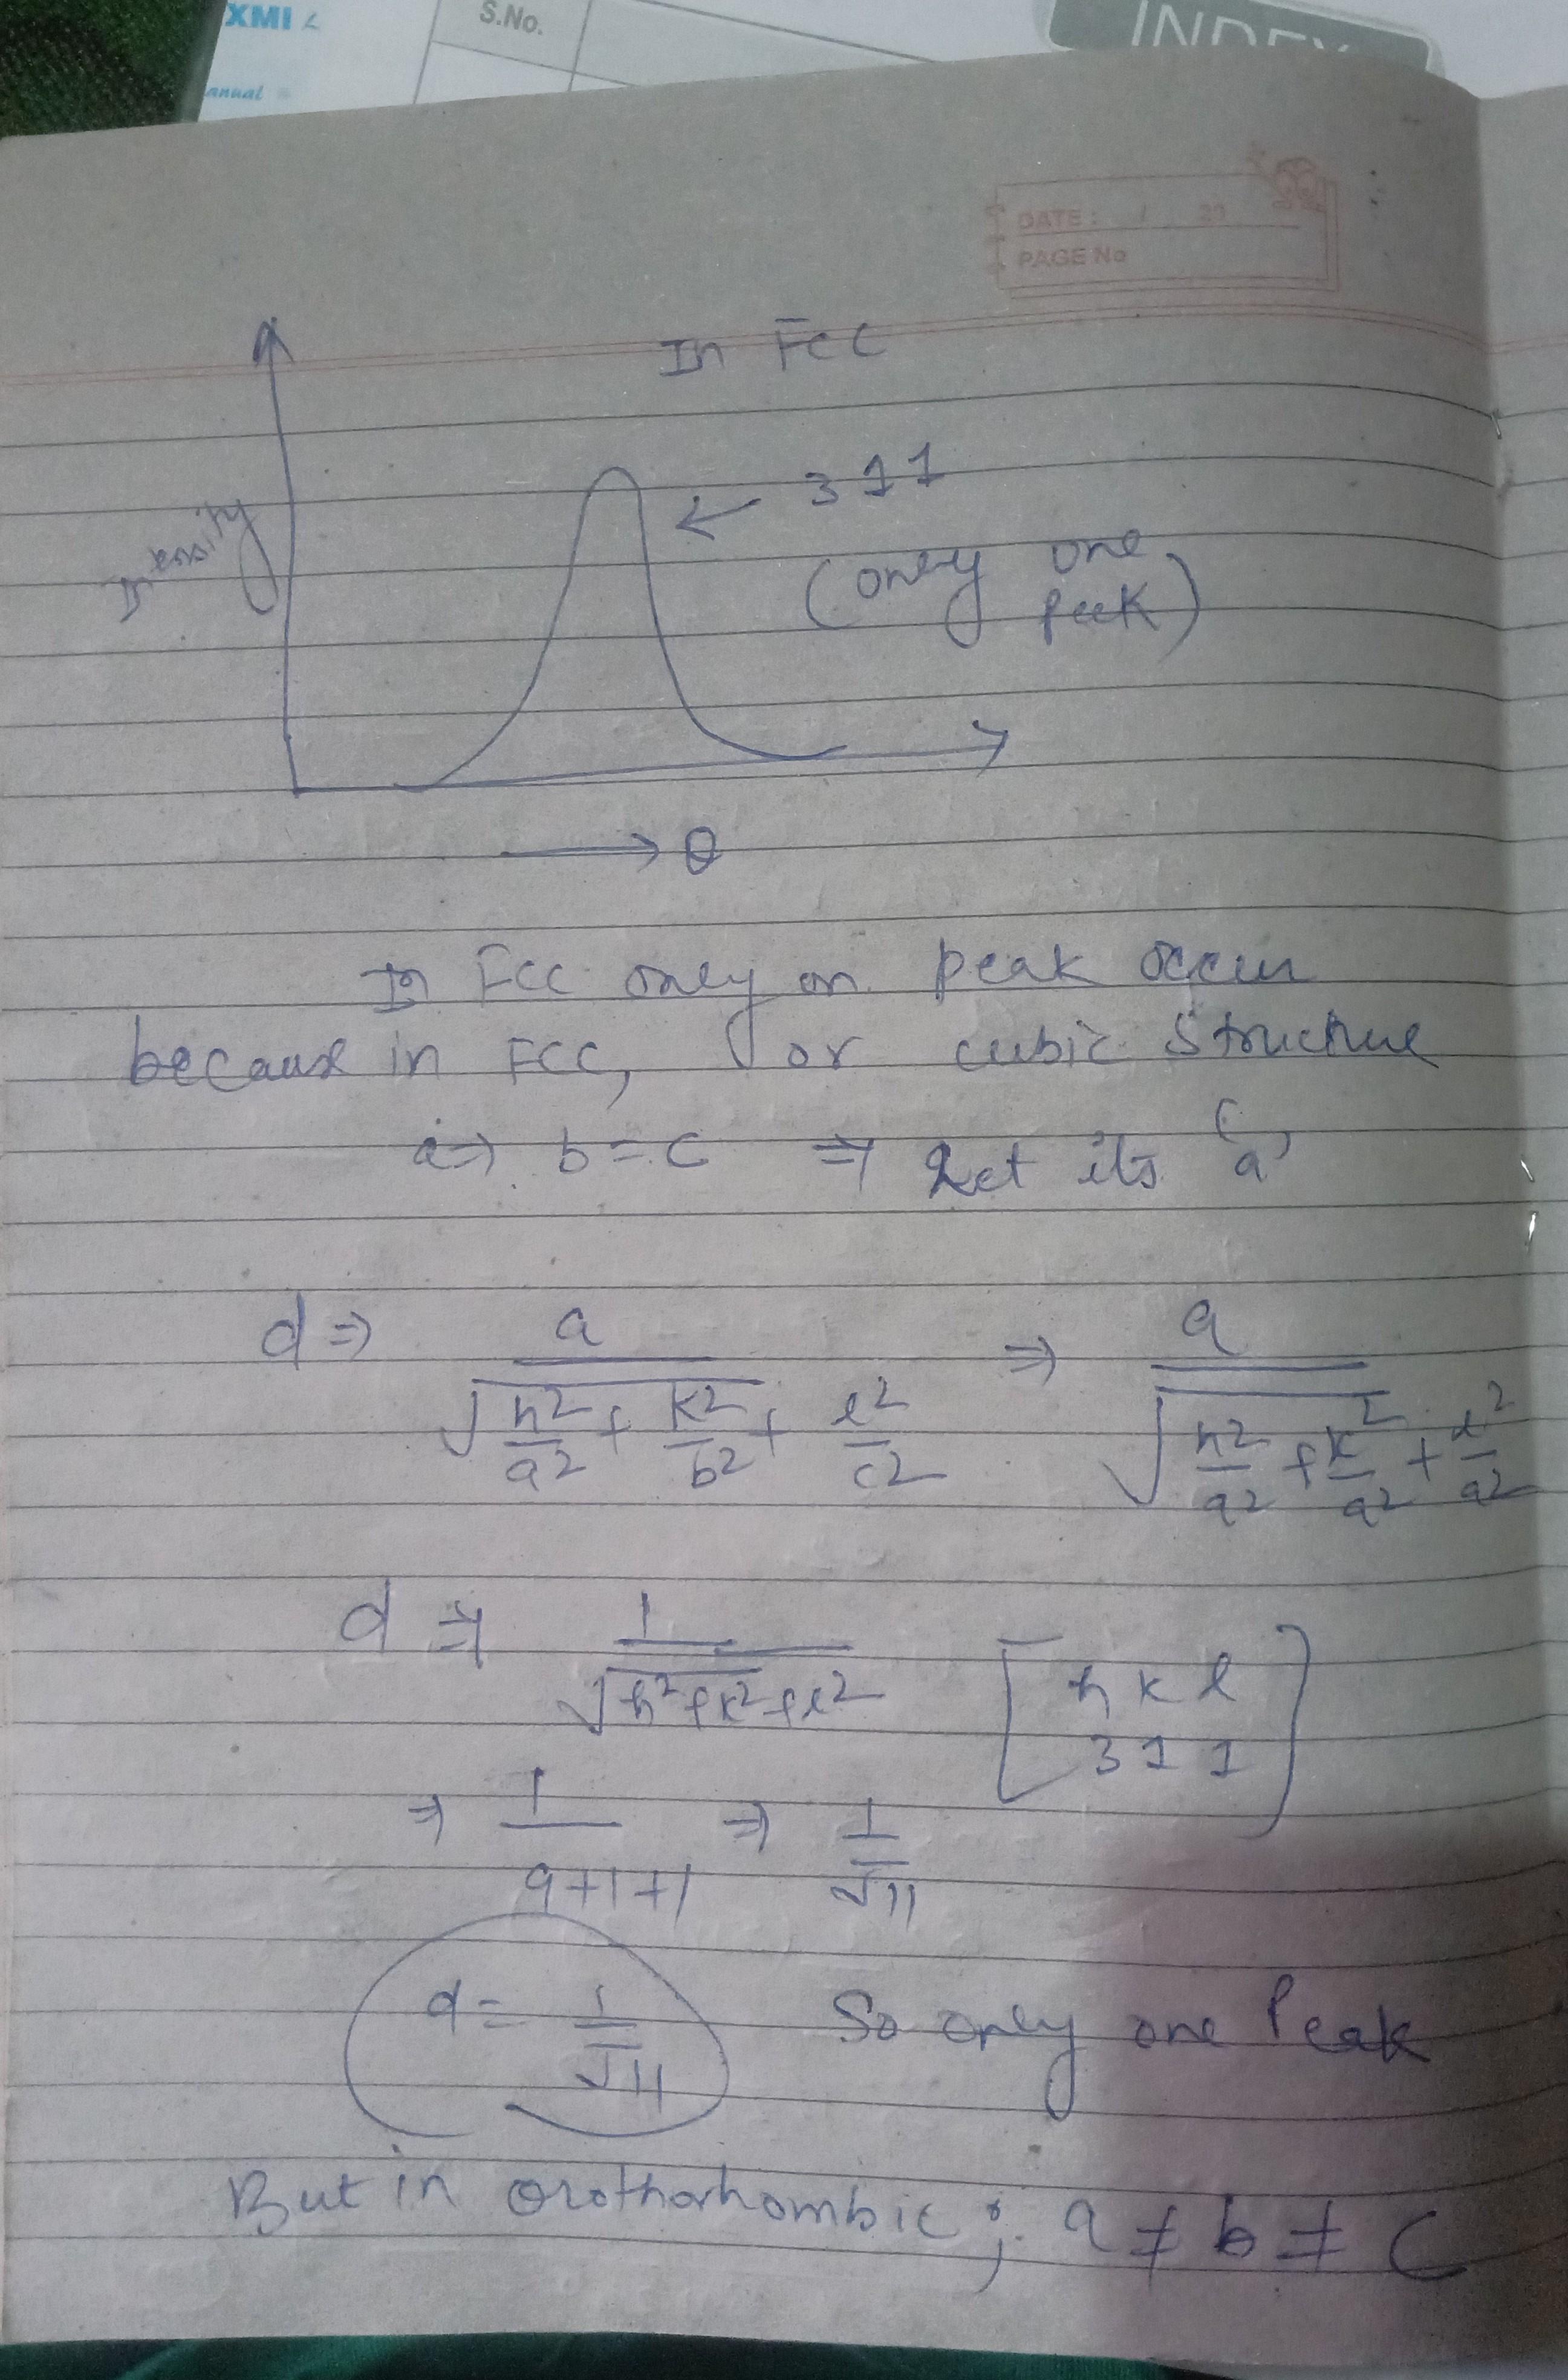 XMI
S.No.
INDEX
anual
DATE: / 20
PAGE No
In FCC
Intensity
← 311
(only one
peek)
→ θ
In FCC only on peak occur
because in FCC, or cubic structure
a⇒ b=c ⇒ Let its 'a'
d⇒ a / √(h²/a² + k²/b² + l²/c²) ⇒ a / √(h²/a² + k²/a² + l²/a²)
d ⇒ 1 / √(h²+k²+l²) [h k l
3 1 1]
⇒ 1 / 9+1+1 ⇒ 1 / √11
d = 1 / √11 So only one Peak
But in orothorhombic; a ≠ b ≠ c